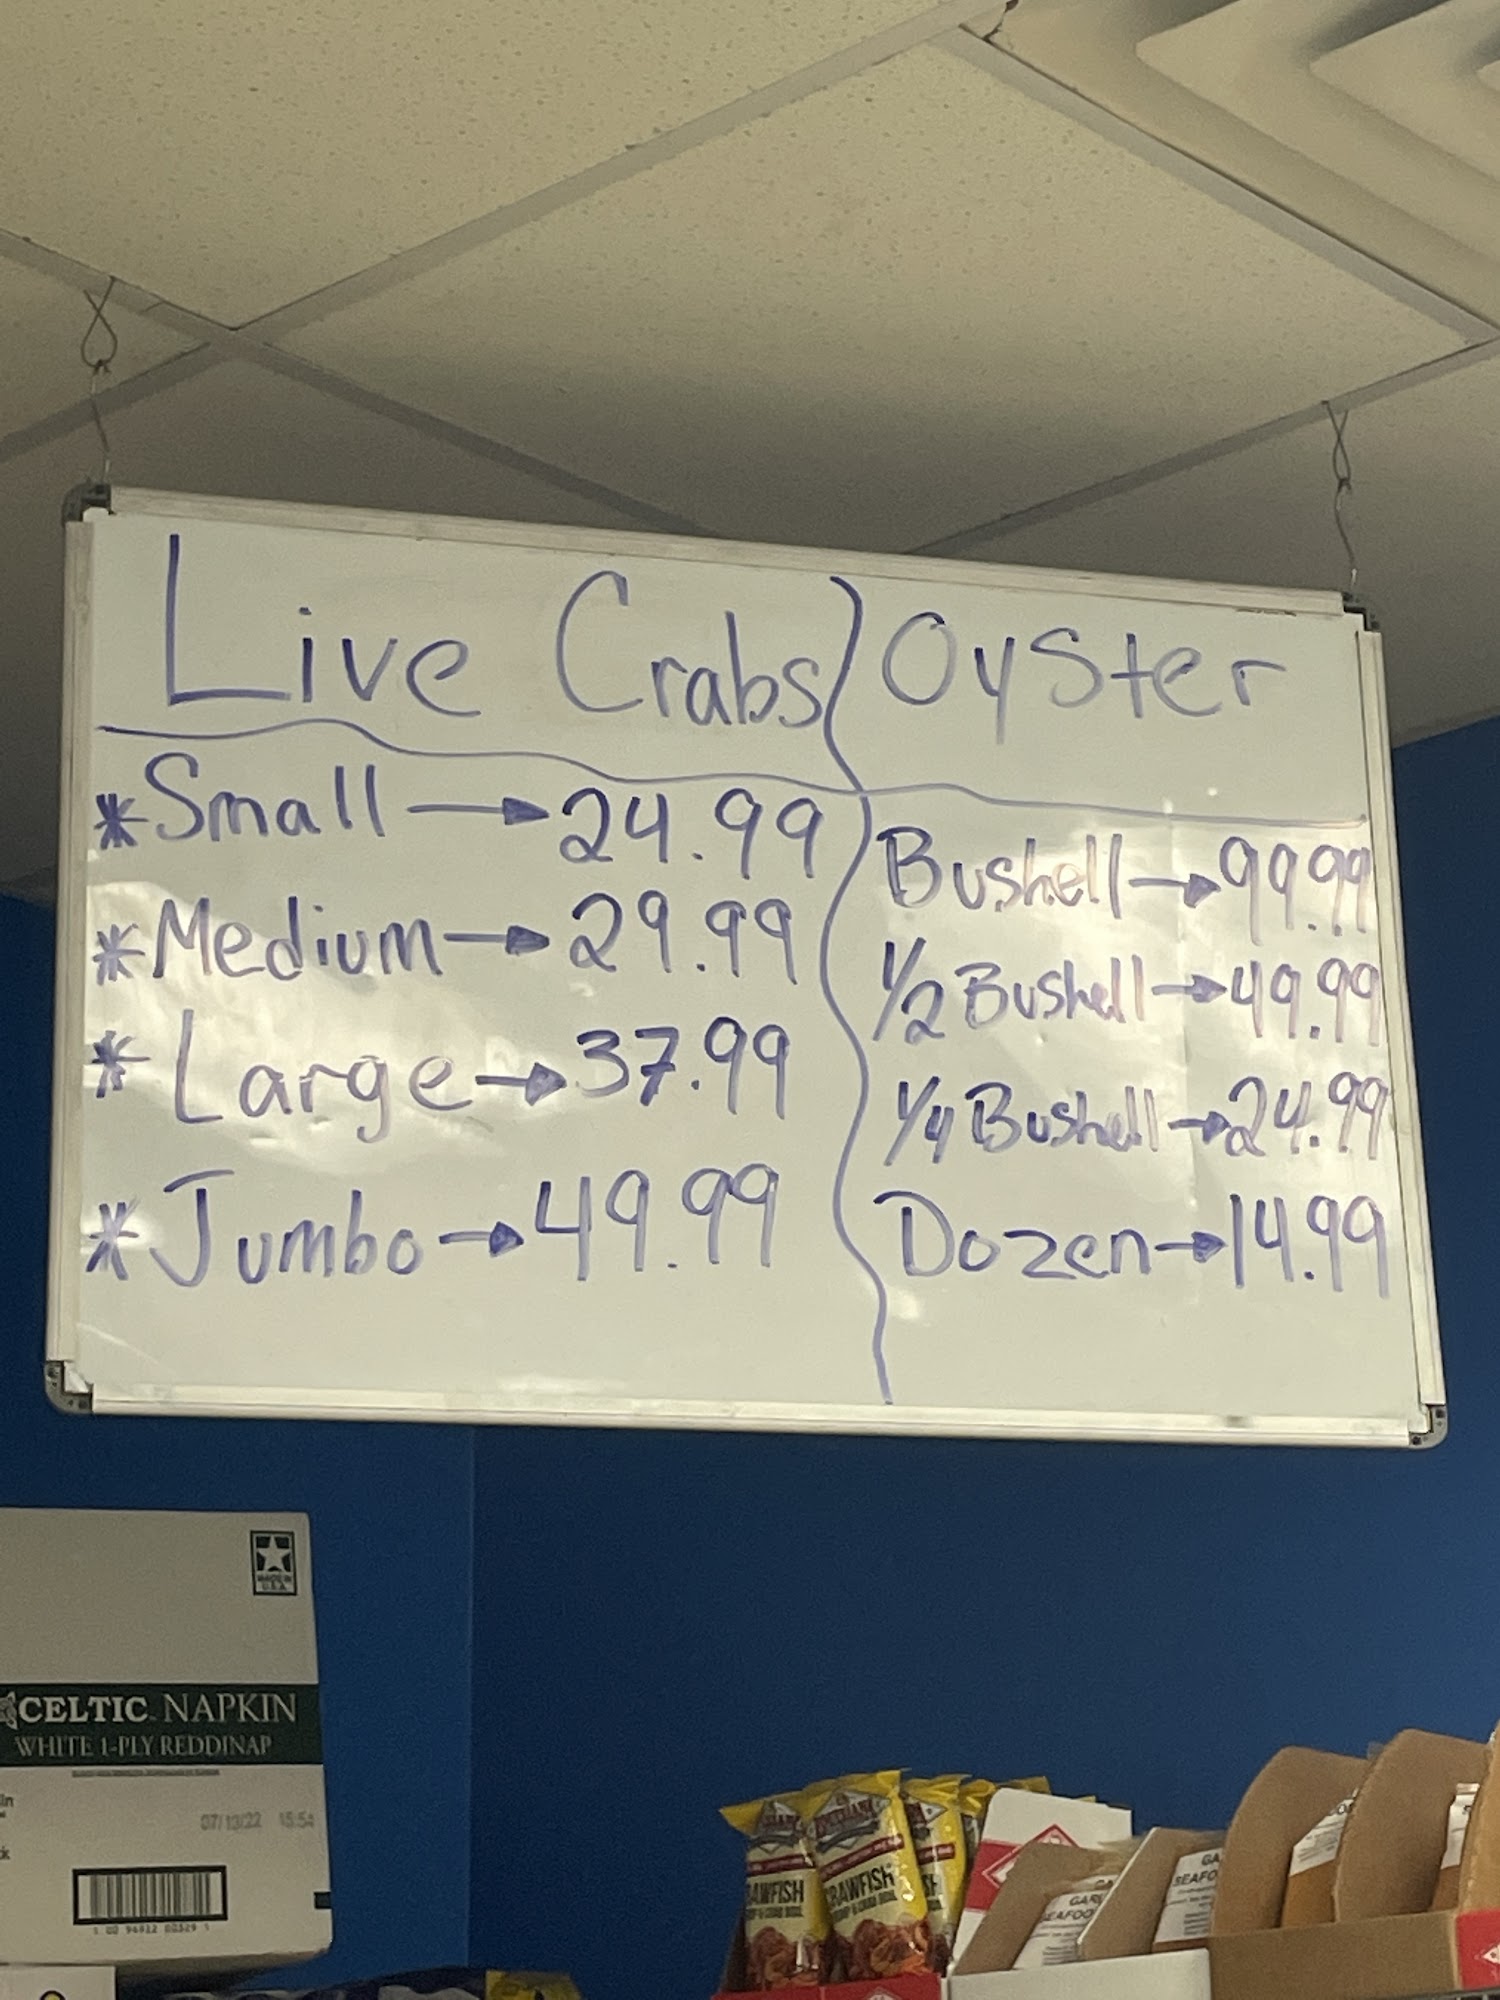 Live Crabs
*Small → 24.99
*Medium → 29.99
*Large → 37.99
*Jumbo → 49.99
Oyster
Bushell → 99.99
1/2 Bushell → 49.99
1/4 Bushell → 24.99
Dozen → 14.99
MADE IN
U.S.A.
CELTIC NAPKIN
WHITE 1-PLY REDDINAP
07/13/22 15:54
CRAWFISH
GARL
SEAFOO
GA
SEAFO